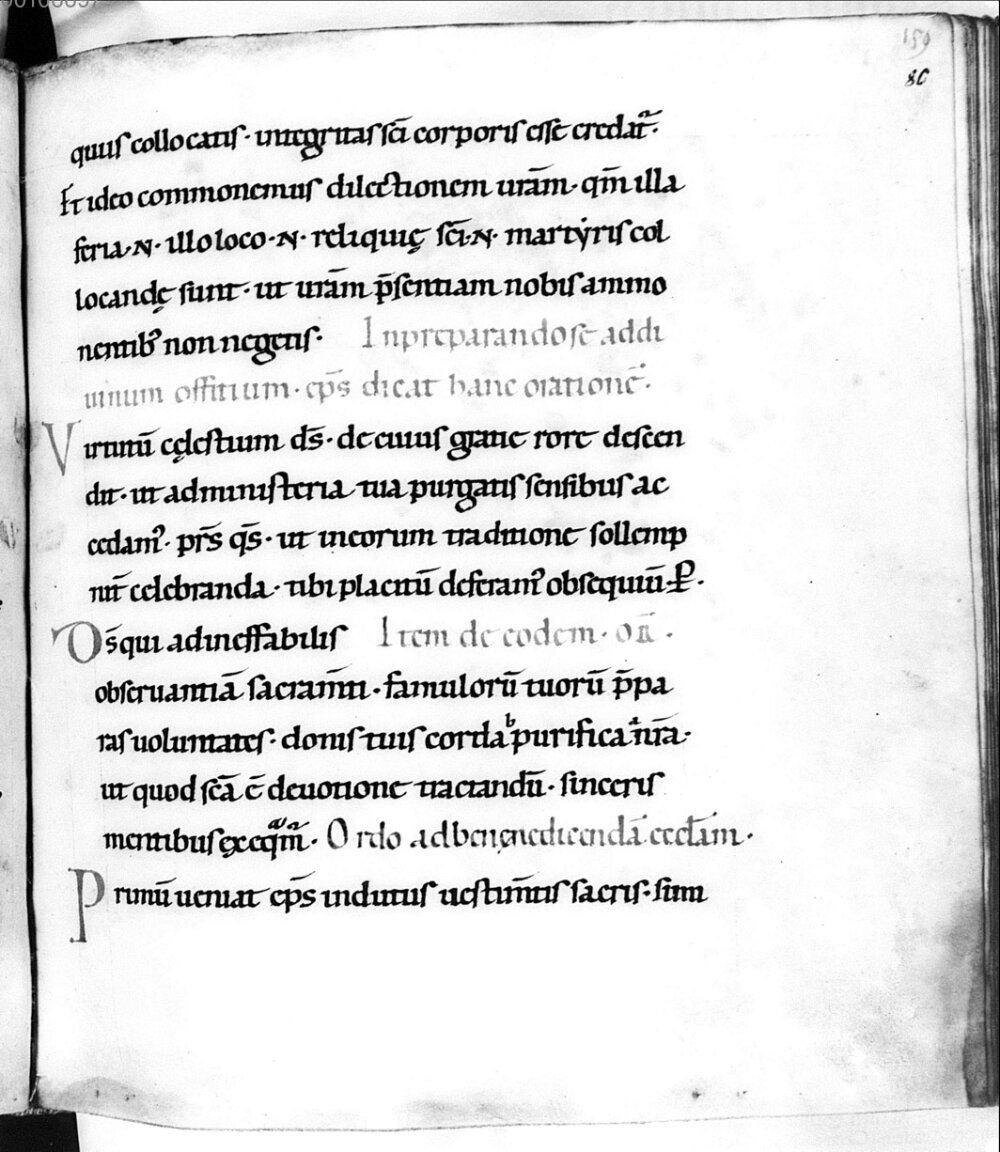 159
80
quus collocatis· integritas sc̄i corporis esse credat᷑·
Et ideo commonemus dilectionem ur̄am· qm̄ illa
feria·N· illo loco·N· reliquię sc̄i·N· martẏris col
locandę sunt· ut ur̄am p̄sentiam nobis ammo
nentibꝰ non negetis· In preparando se ad di
uinum offitium· ep̄s dicat hanc orationē·
Virtutū cęlestium d̄s· de cuius gratie rore descen
dit· ut ad ministeria tua purgatis sensibus ac
cedamꝰ· pr̄s q̄s· ut in eorum traditione sollemp
nit̄ celebranda· tibi placitū deferamꝰ obsequiū· P̄·
Ds̄ qui ad ineffabilis Item de eodem· or̄·
obseruantiā sacram̄ti· famulorū tuorū p̄pa
ras uoluntates· donis tuis corda ᵇpurifica ᵃnr̄a·
ut quod sc̄ā ē deuotione tractandū· sinceris
mentibus exeqᵃm̄· Ordo ad benenedicendā eccl̄am·
Primū ueniat ep̄s indutus uestim̄tis sacris· simi